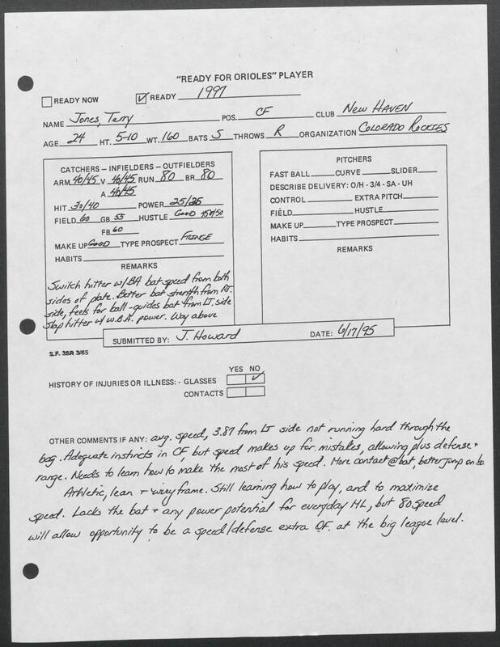 "READY FOR ORIOLES" PLAYER
READY NOW READY 1997
NAME Jones, Terry POS. CF CLUB New HAVEN
AGE 24 HT. 5-10 WT. 160 BATS S THROWS R ORGANIZATION COLORADO ROCKIES
CATCHERS – INFIELDERS – OUTFIELDERS
ARM 40/45 V 40/45 RUN 80 BR 80
A 40/45
HIT 30/40 POWER 25/25
FIELD 60 GB 55 HUSTLE Good
FB 60
MAKE UP Good TYPE PROSPECT FRINGE
HABITS
REMARKS
Switch hitter w/BA bat speed from both
sides of plate. Better bat strength from Rt.
side, feels for ball - guides bat from LT. side
Slap hitter w/ w.B.A. power. Way above
PITCHERS
FAST BALL CURVE SLIDER
DESCRIBE DELIVERY: O/H - 3/4 - SA - UH
CONTROL EXTRA PITCH
FIELD HUSTLE
MAKE UP TYPE PROSPECT
HABITS
REMARKS
SUBMITTED BY: J. Howard DATE: 6/17/95
S.F. 38R 3/85
YES NO
HISTORY OF INJURIES OR ILLNESS: - GLASSES ✓
CONTACTS
OTHER COMMENTS IF ANY: avg. speed, 3.87 from LT side not running hard through the
bag. Adequate instincts in CF but speed makes up for mistakes, allowing plus defense +
range. Needs to learn how to make the most of his speed. More contact @ bat, better jump on b
Athletic, lean + wirey frame. Still learning how to play, and to maximize
speed. Lacks the bat + any power potential for everyday ML, but 80 speed
will allow opportunity to be a speed/defense extra OF. at the big league level.